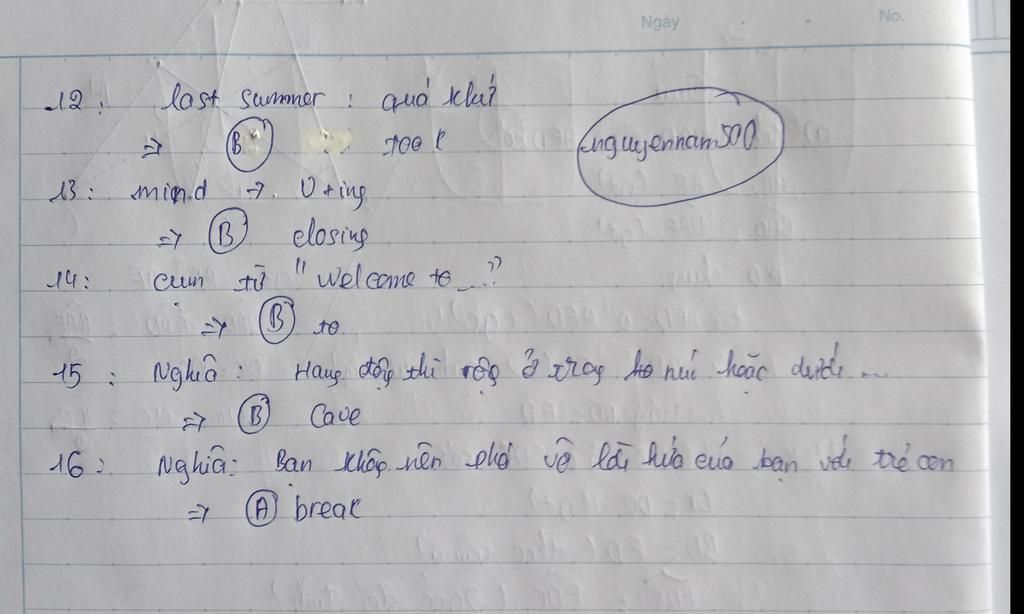 Ngày No.
12: last summer : quá khứ
=> B took
nguyennam500
13: mind -> V+ing
=> B closing
14: cụm từ "Welcome to ..."
=> B to
15: Nghĩa: Hang động thì rộng ở trong núi hoặc dưới ...
=> B Cave
16: Nghĩa: Bạn không nên phá vỡ lời hứa của bạn với trẻ con
=> A break